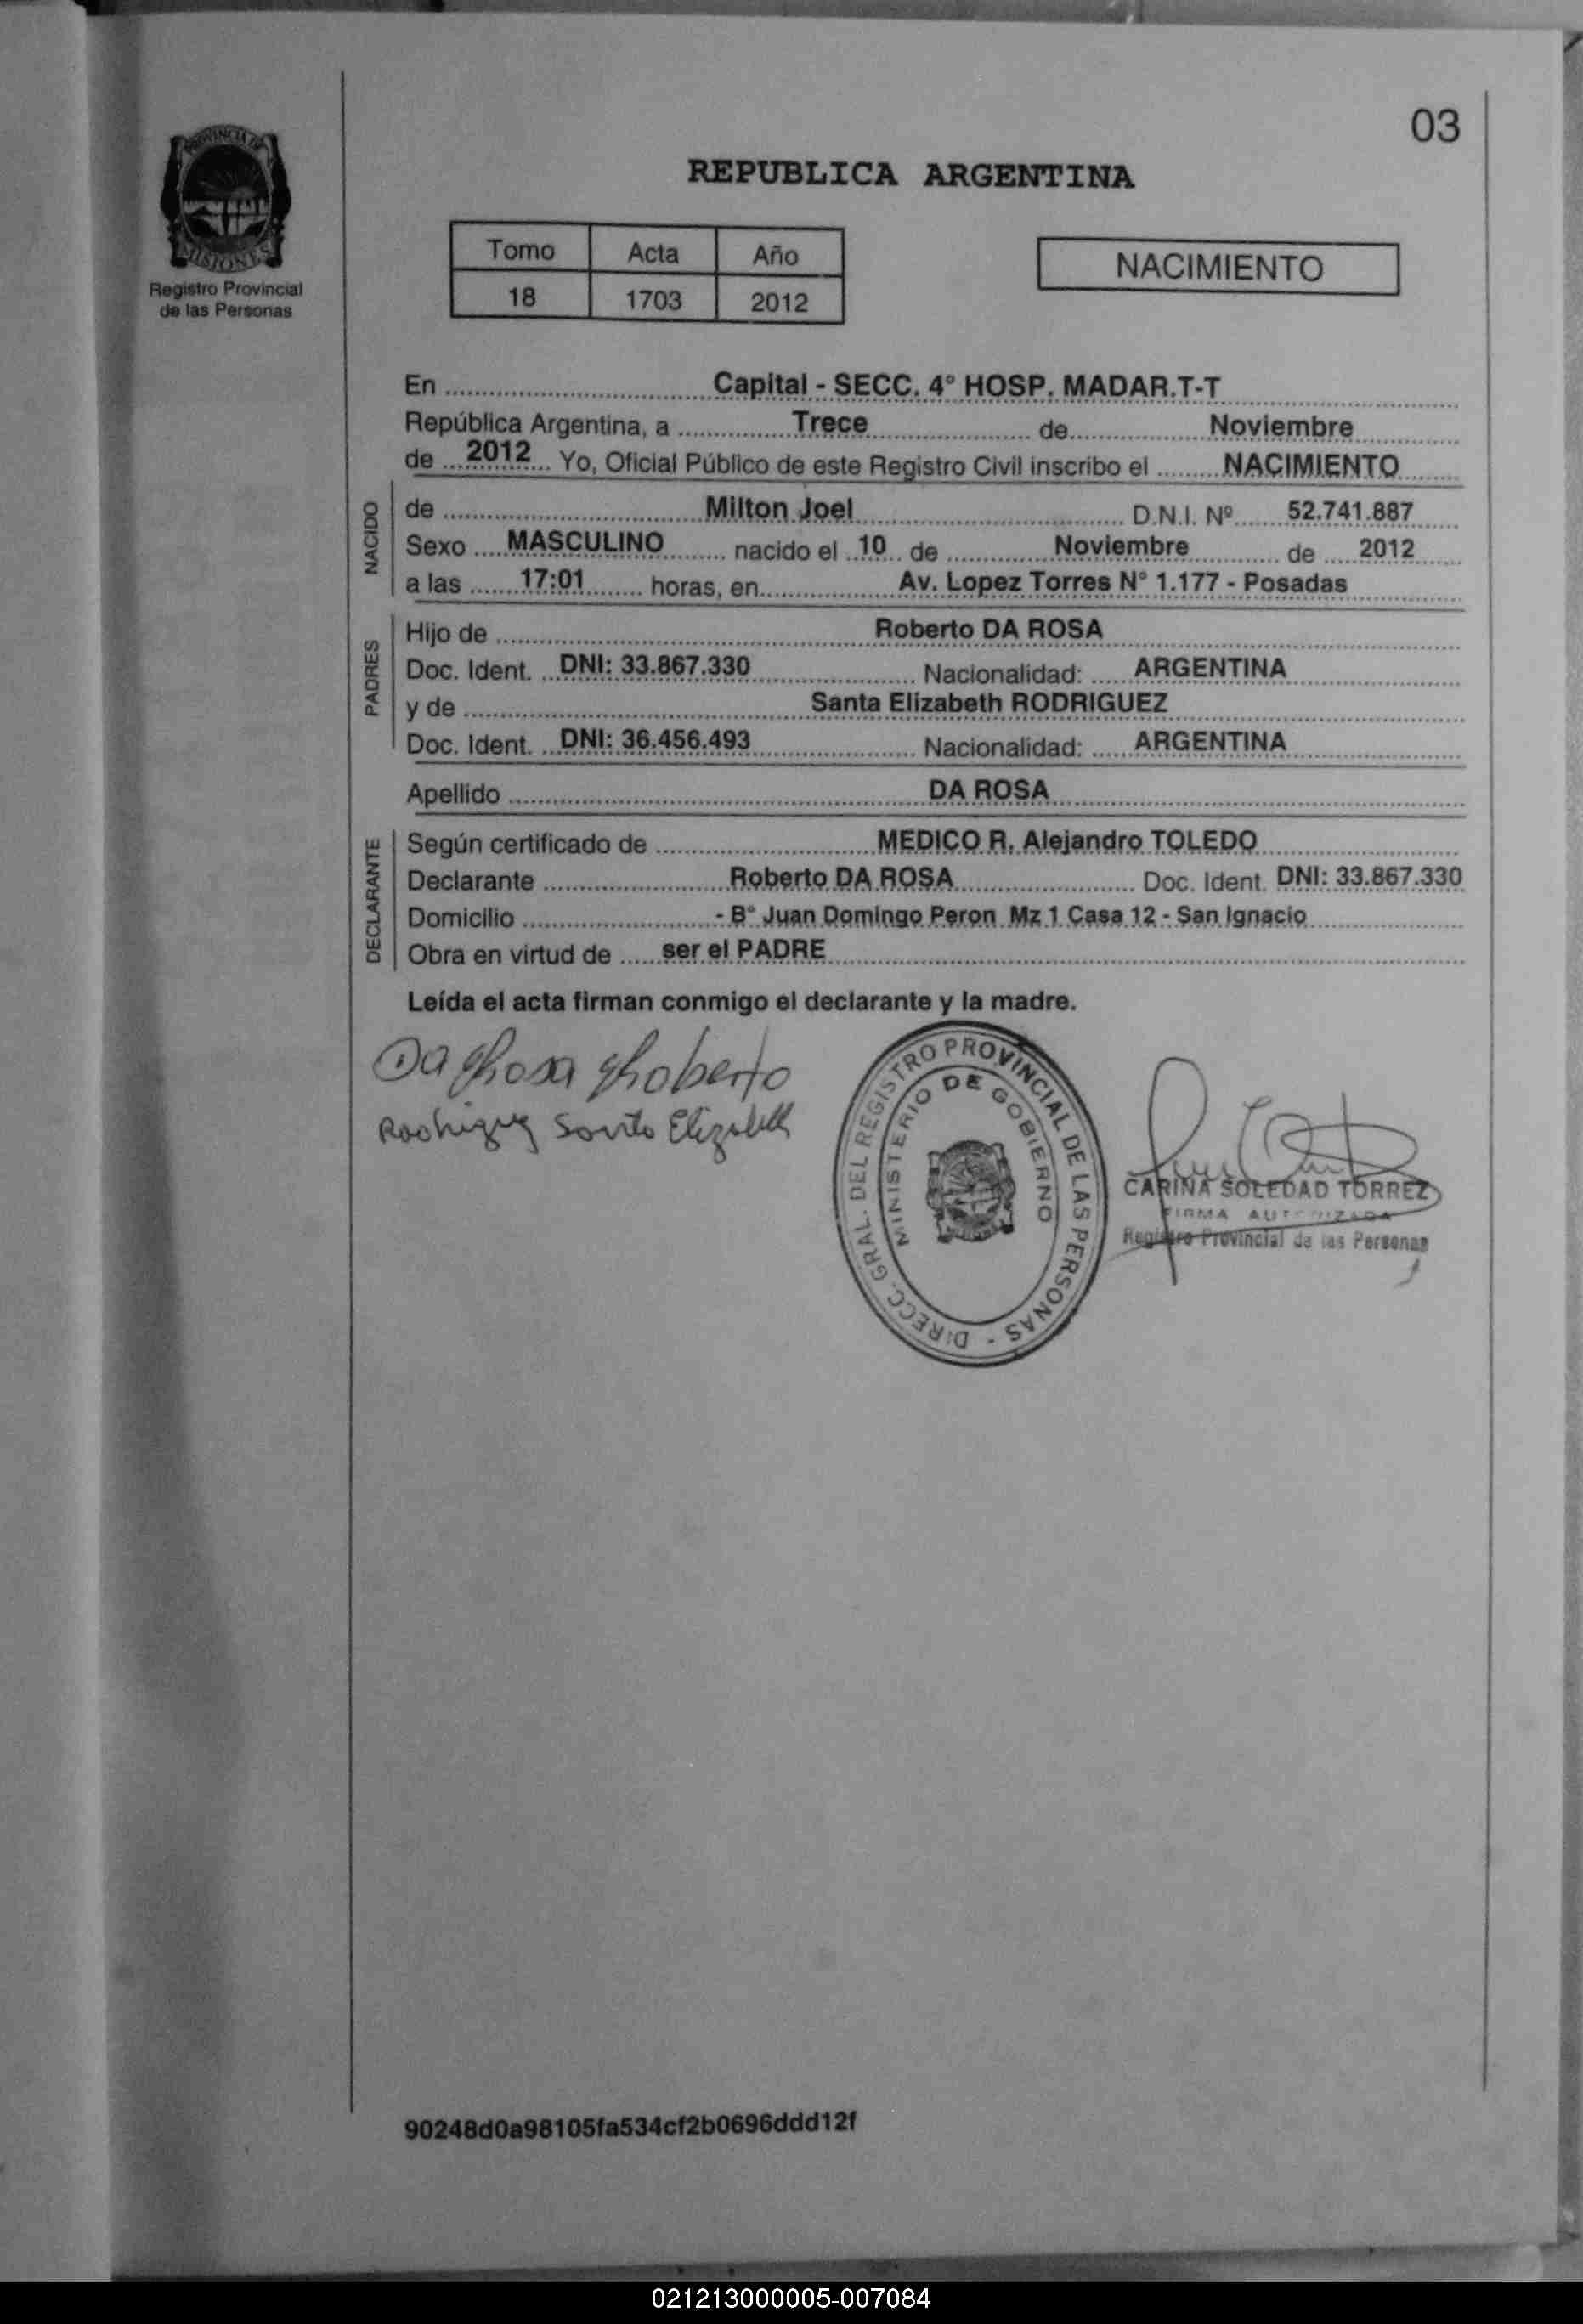 03
PROVINCIA DE
MISIONES
Registro Provincial
de las Personas
REPUBLICA ARGENTINA
Tomo Acta Año
18 1703 2012
NACIMIENTO
En Capital - SECC. 4° HOSP. MADAR.T-T
República Argentina, a Trece de Noviembre
de 2012 Yo, Oficial Público de este Registro Civil inscribo el NACIMIENTO
NACIDO
de Milton Joel D.N.I. Nº 52.741.887
Sexo MASCULINO nacido el 10 de Noviembre de 2012
a las 17:01 horas, en Av. Lopez Torres N° 1.177 - Posadas
PADRES
Hijo de Roberto DA ROSA
Doc. Ident. DNI: 33.867.330 Nacionalidad: ARGENTINA
y de Santa Elizabeth RODRIGUEZ
Doc. Ident. DNI: 36.456.493 Nacionalidad: ARGENTINA
Apellido DA ROSA
DECLARANTE
Según certificado de MEDICO R. Alejandro TOLEDO
Declarante Roberto DA ROSA Doc. Ident. DNI: 33.867.330
Domicilio - B° Juan Domingo Peron Mz 1 Casa 12 - San Ignacio
Obra en virtud de ser el PADRE
Leída el acta firman conmigo el declarante y la madre.
Da Rosa Roberto
Rodriguez Santa Elizabeth
DIRECC. GRAL. DEL REGISTRO PROVINCIAL DE LAS PERSONAS -
MINISTERIO DE GOBIERNO
CARINA SOLEDAD TORREZ
FIRMA AUTORIZADA
Registro Provincial de las Personas
90248d0a98105fa534cf2b0696ddd12f
021213000005-007084